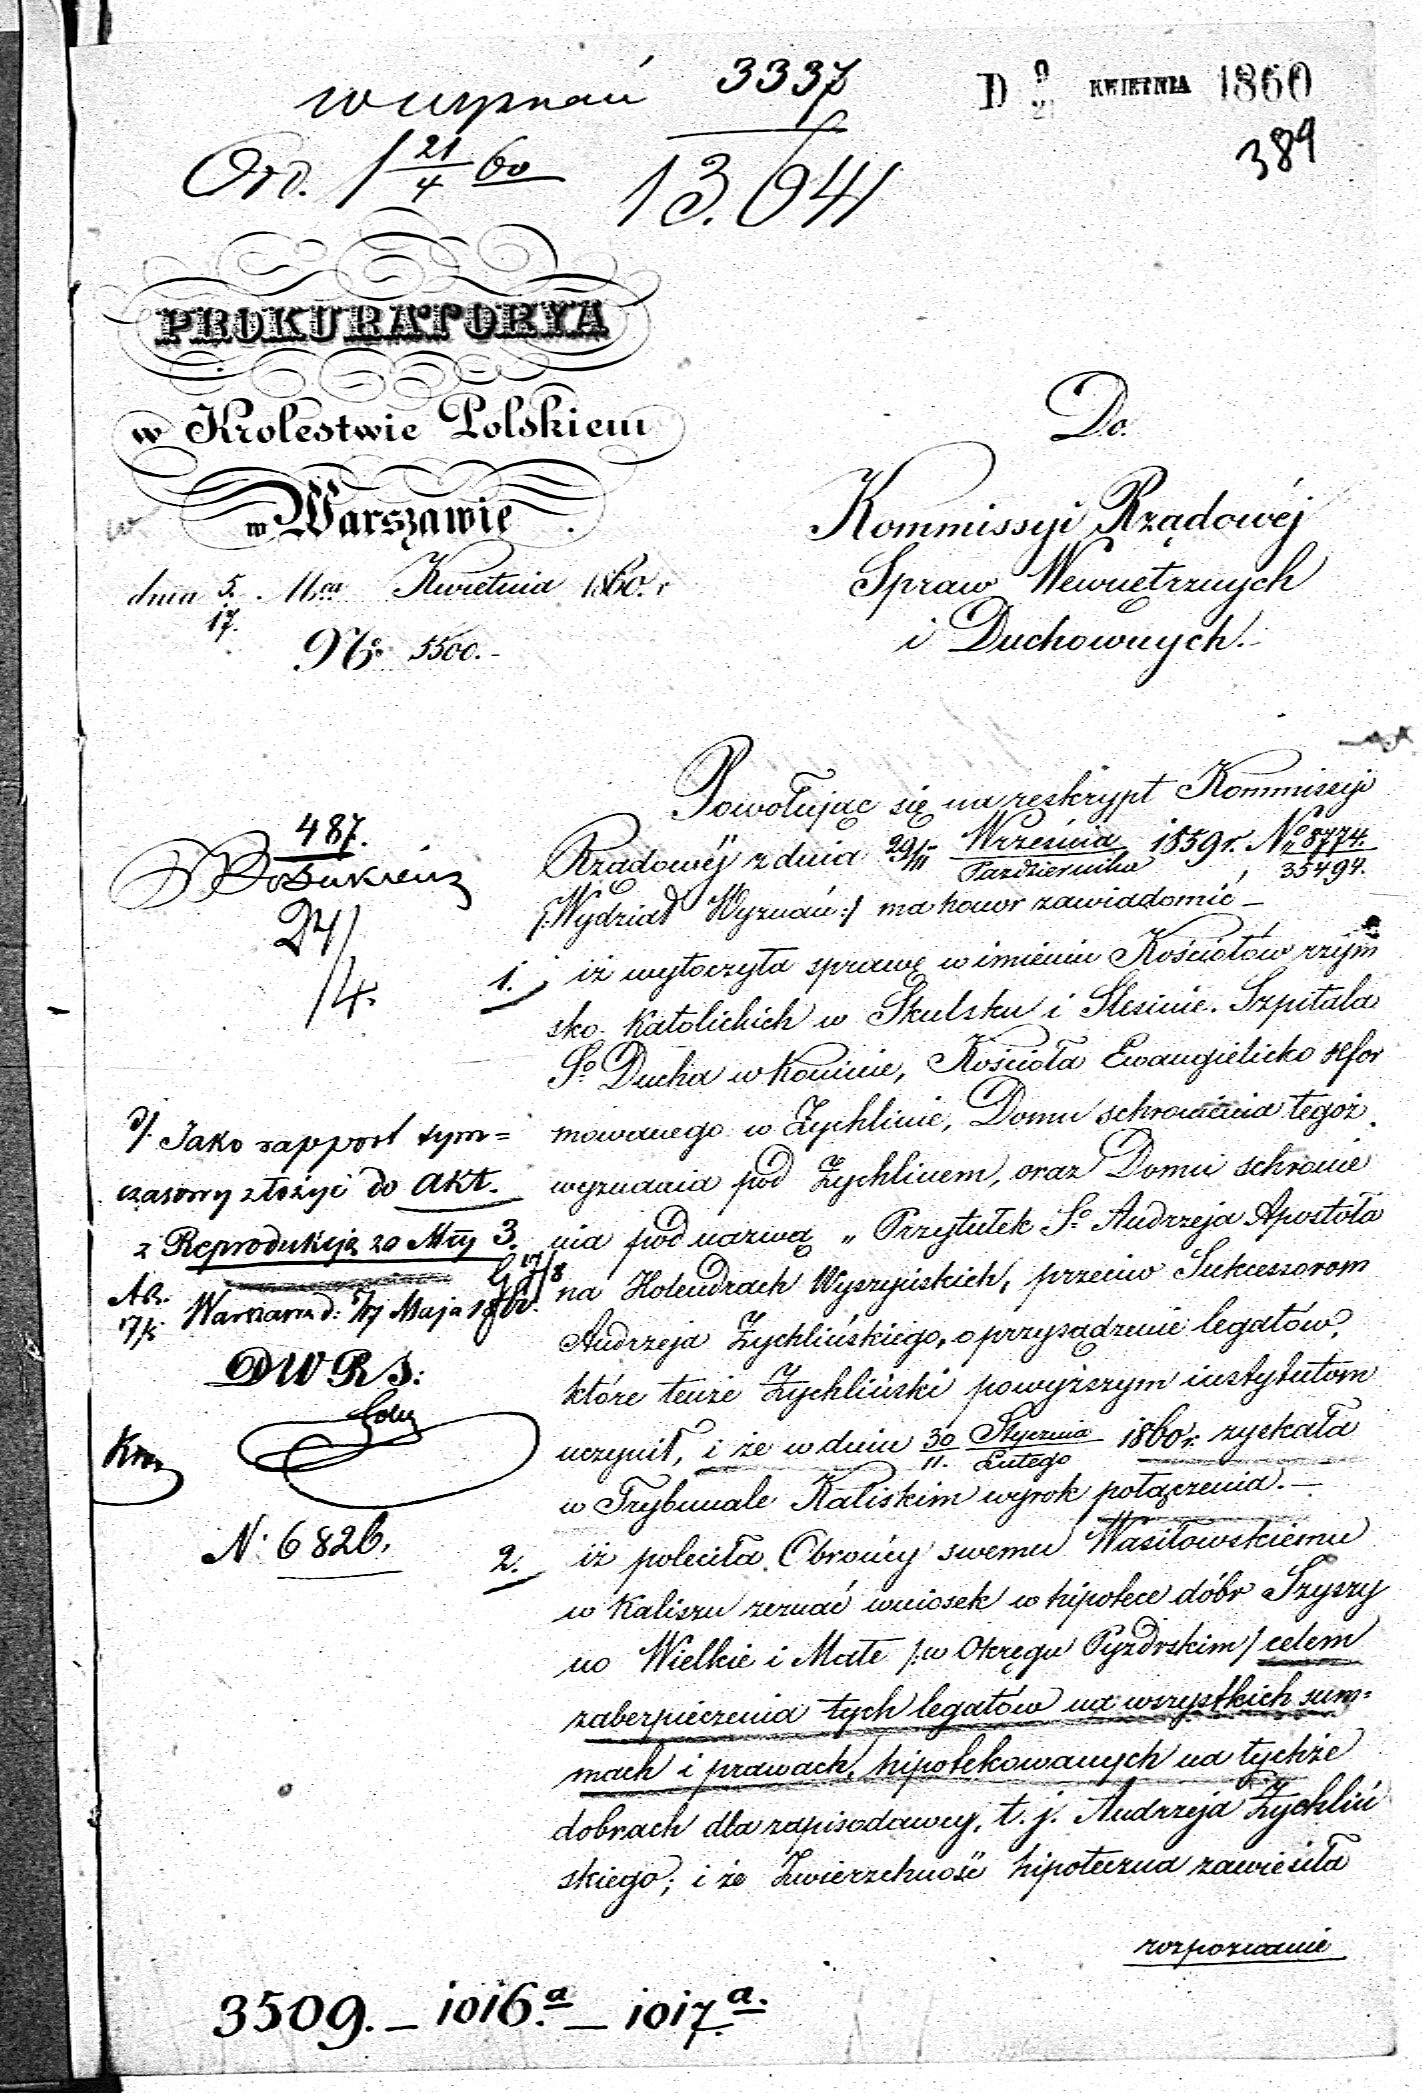 w wyznań
3337
13.641
D 9/21 KWIETNIA 1860
389
Ord. 21/4 60
PROKURATORYA
w Krolestwie Polskiem
w Warszawie
dnia 5/17. Mca Kwietnia 1860. r
No 5500.
Do.
Kommissyi Rządowéj
Spraw Wewnętrznych
i Duchownych.
Powołując się na reskrypt Kommissyi
Rządowéj z dnia 29/11 Września/Października 1859 r. No 8774./35494.
/:Wydział Wyznań:/ ma honor zawiadomić –
1. iż wytoczyła sprawę w imieniu Kościołów rzym
sko. Katolickich w Skulsku i Slesinie. Szpitala
So Ducha w Koninie, Kościoła Ewangielicko refor
mowanego w Żychlinie, Domu schronienia tegoż
wyznania pod Żychlinem, oraz Domu schronie
nia pod nazwą „ Przytułek So Andrzeja Apostoła
na Holendrach Wyszyńskich, przeciw Sukcessorom
Andrzeja Żychlińskiego, o przysądzenie legatów,
które tenże Żychliński powyższym instytutom
uczynił, i że w dniu 30/11. Stycznia/Lutego 1860 r. zyskała
w Trybunale Kaliskim wyrok połączenia. –
2. iż poleciła Obrońcy swemu Wasiłowskiemu
w Kaliszu zeznać wniosek w hipotece dóbr Szyszy
no Wielkie i Małe /:w Okręgu Pyzdrskim/ celem
zabezpieczenia tych legatów na wszystkich sum=
mach i prawach, hipotekowanych na tychże
dobrach dla zapisodawcy, t. j. Andrzeja Żychliń
skiego; i że Zwierzchność hipoteczna zawiesiła
rozpoznanie
487.
24/4.
Jako rapport tym=
czasowy złożyć do Akt.
z Reprodukcją za Mcy 3.
Warszawa d: 5/17 Maja 1860.
DWRS:
N. 6826.
3509. – 1016.a – 1017.a.